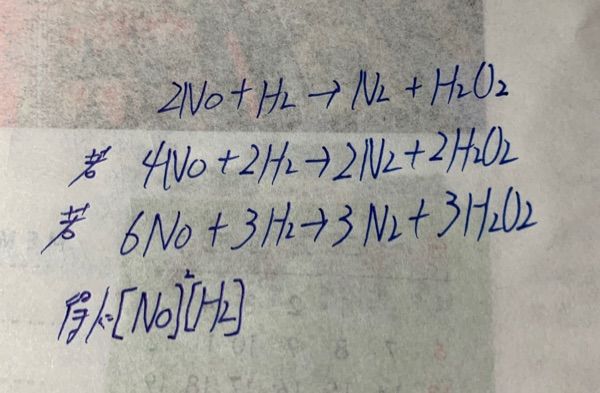 2No + H₂ → N₂ + H₂O₂
若 4No + 2H₂ → 2N₂ + 2H₂O₂
若 6No + 3H₂ → 3N₂ + 3H₂O₂
[No]²[H₂]